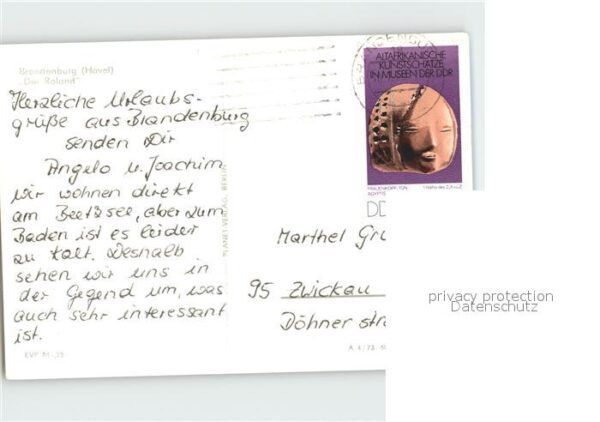 Brandenburg (Havel)
"Der Roland"
Herzliche Urlaubs-
grüße aus Brandenburg
senden Dir
Angelo u. Joachim
wir wohnen direkt
am Beetzsee, aber zum
Baden ist es leider
zu kalt. Deshalb
sehen wir uns in
der Gegend um, was
auch sehr interessant
ist.
EVP M -,25
PLANET-VERLAG, BERLIN
ALTAFRIKANISCHE
KUNSTSCHÄTZE
IN MUSEEN DER DDR
FRAUENKOPF, TON
ÄGYPTEN
DD
Marthel Gr
95 Zwickau
Döhner str
A 4/73
privacy protection
Datenschutz